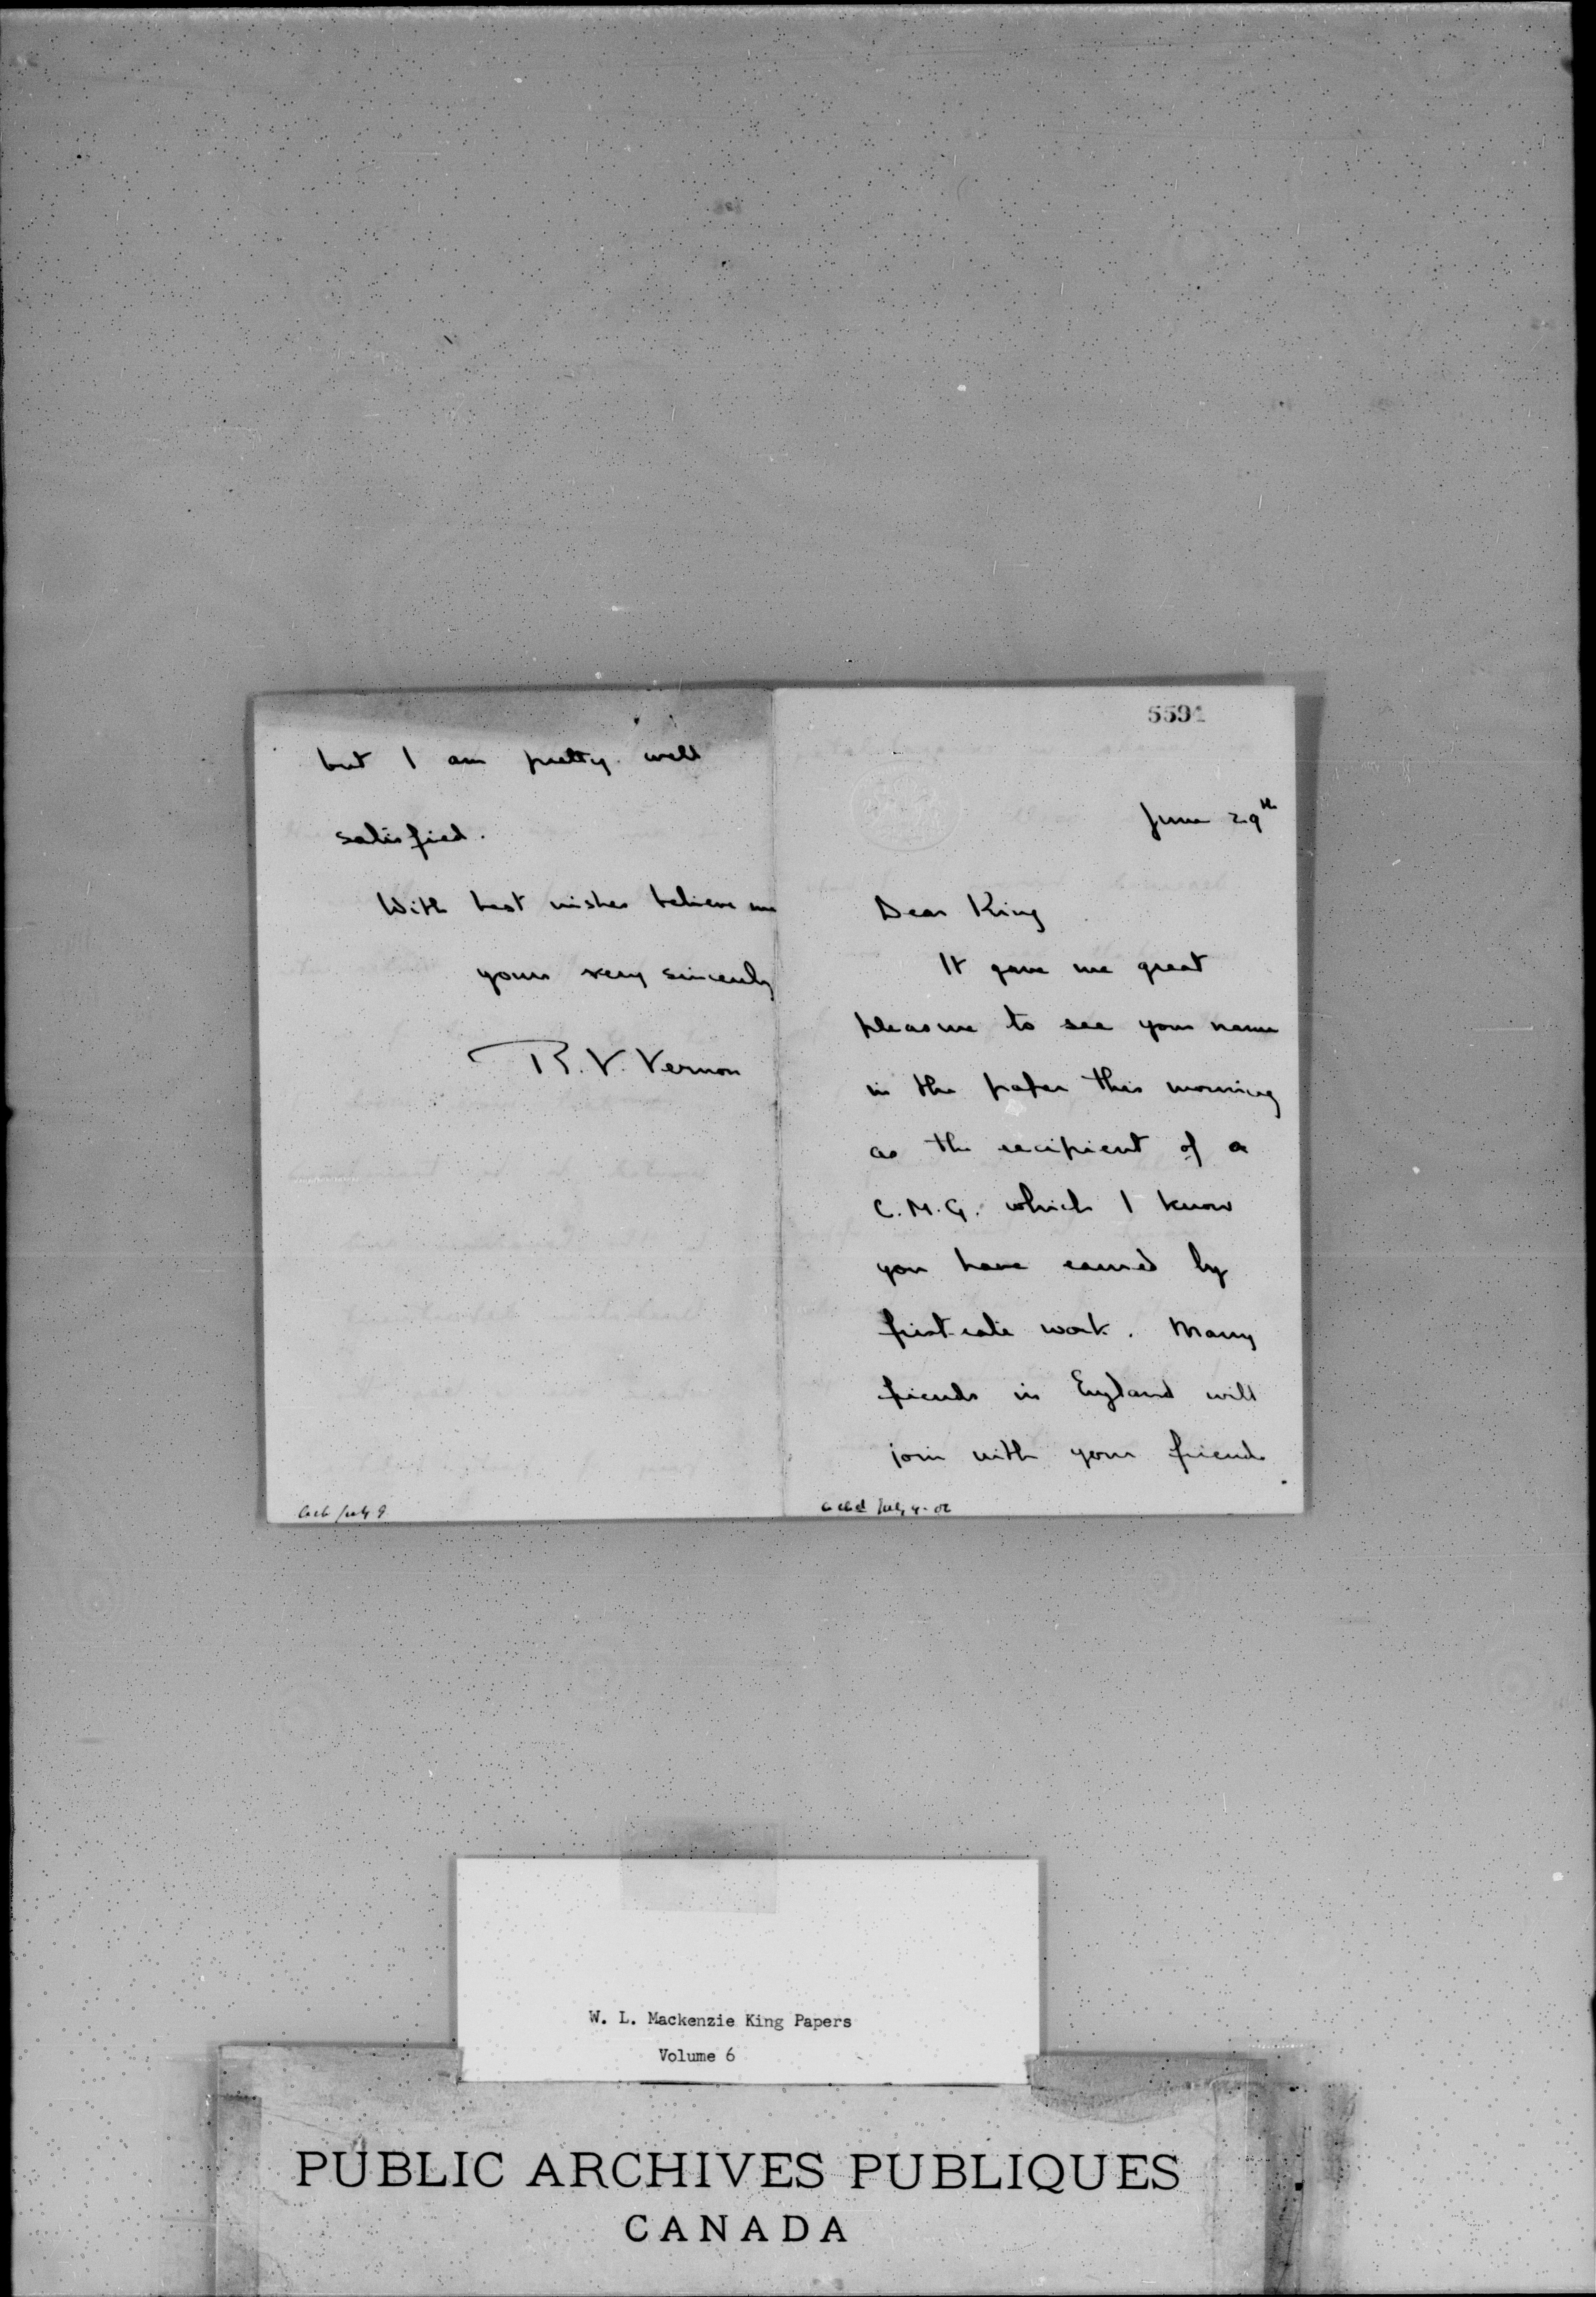 but I am pretty well
satisfied.
With best wishes believe me
yours very sincerely
R. V. Vernon
5591
June 29th
Dear King
It gave me great
pleasure to see your name
in the paper this morning
as the recipient of a
C.M.G. which I know
you have earned by
first-rate work. Many
friends in England will
join with your friends
July 9
July
W. L. Mackenzie King Papers
Volume 6
PUBLIC ARCHIVES PUBLIQUES
CANADA